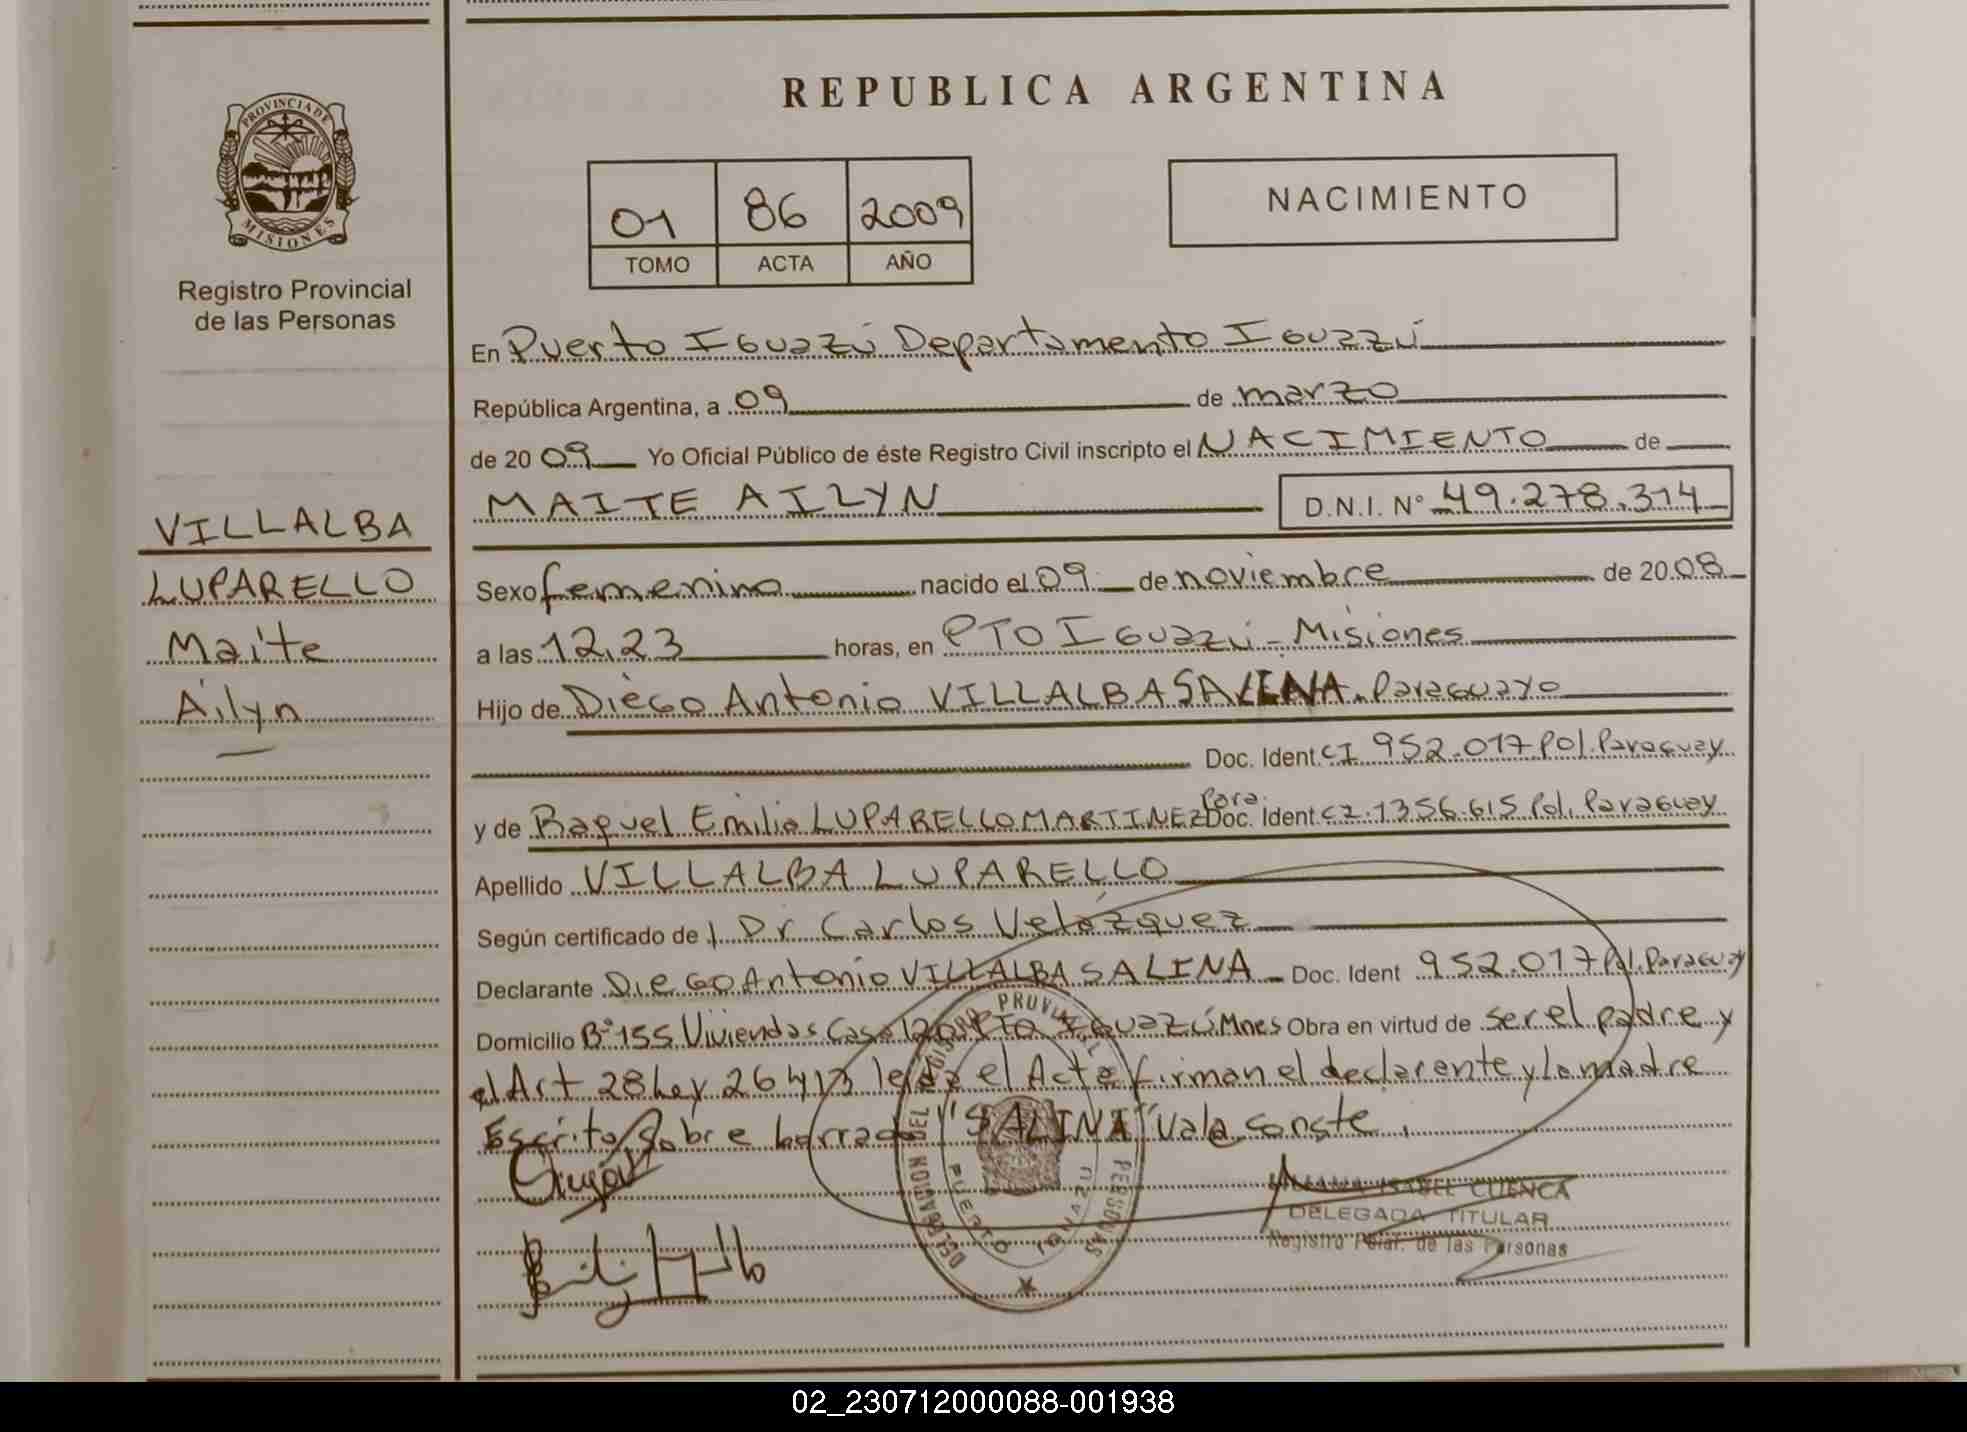 REPUBLICA ARGENTINA
PROVINCIA DE
MISIONES
Registro Provincial
de las Personas
01 86 2009
TOMO ACTA AÑO
NACIMIENTO
VILLALBA
LUPARELLO
Maite
Ailyn
En Puerto Iguazú Departamento Iguazú
República Argentina, a 09 de marzo
de 2009 Yo Oficial Público de éste Registro Civil inscripto el NACIMIENTO de
MAITE AILYN D.N.I. Nº 49.278.314
Sexo femenino nacido el 09 de noviembre de 2008
a las 12,23 horas, en PTO Iguazú - Misiones
Hijo de Diego Antonio VILLALBA SALINA. Paraguayo
Doc. Ident. CI 952.017 Pol. Paraguay
y de Raquel Emilia LUPARELLO MARTINEZ Para. Doc. Ident. CI. 1356.615 Pol. Paraguay
Apellido VILLALBA LUPARELLO
Según certificado de Dr Carlos Velázquez
Declarante Diego Antonio VILLALBA SALINA Doc. Ident 952.017 Pol. Paraguay
Domicilio Bº 155 Viviendas Casa PTO Iguazú Mnes Obra en virtud de ser el padre y
el Art 28 Ley 26413 leída el Acta firman el declarante y la madre
Escrito sobre borrado "SALINA" Vale conste.
ISABEL CUENCA
DELEGADA TITULAR
Registro de las Personas
DELEGACION DEL REGISTRO PERSONAS
PUERTO IGUAZU
02_230712000088-001938